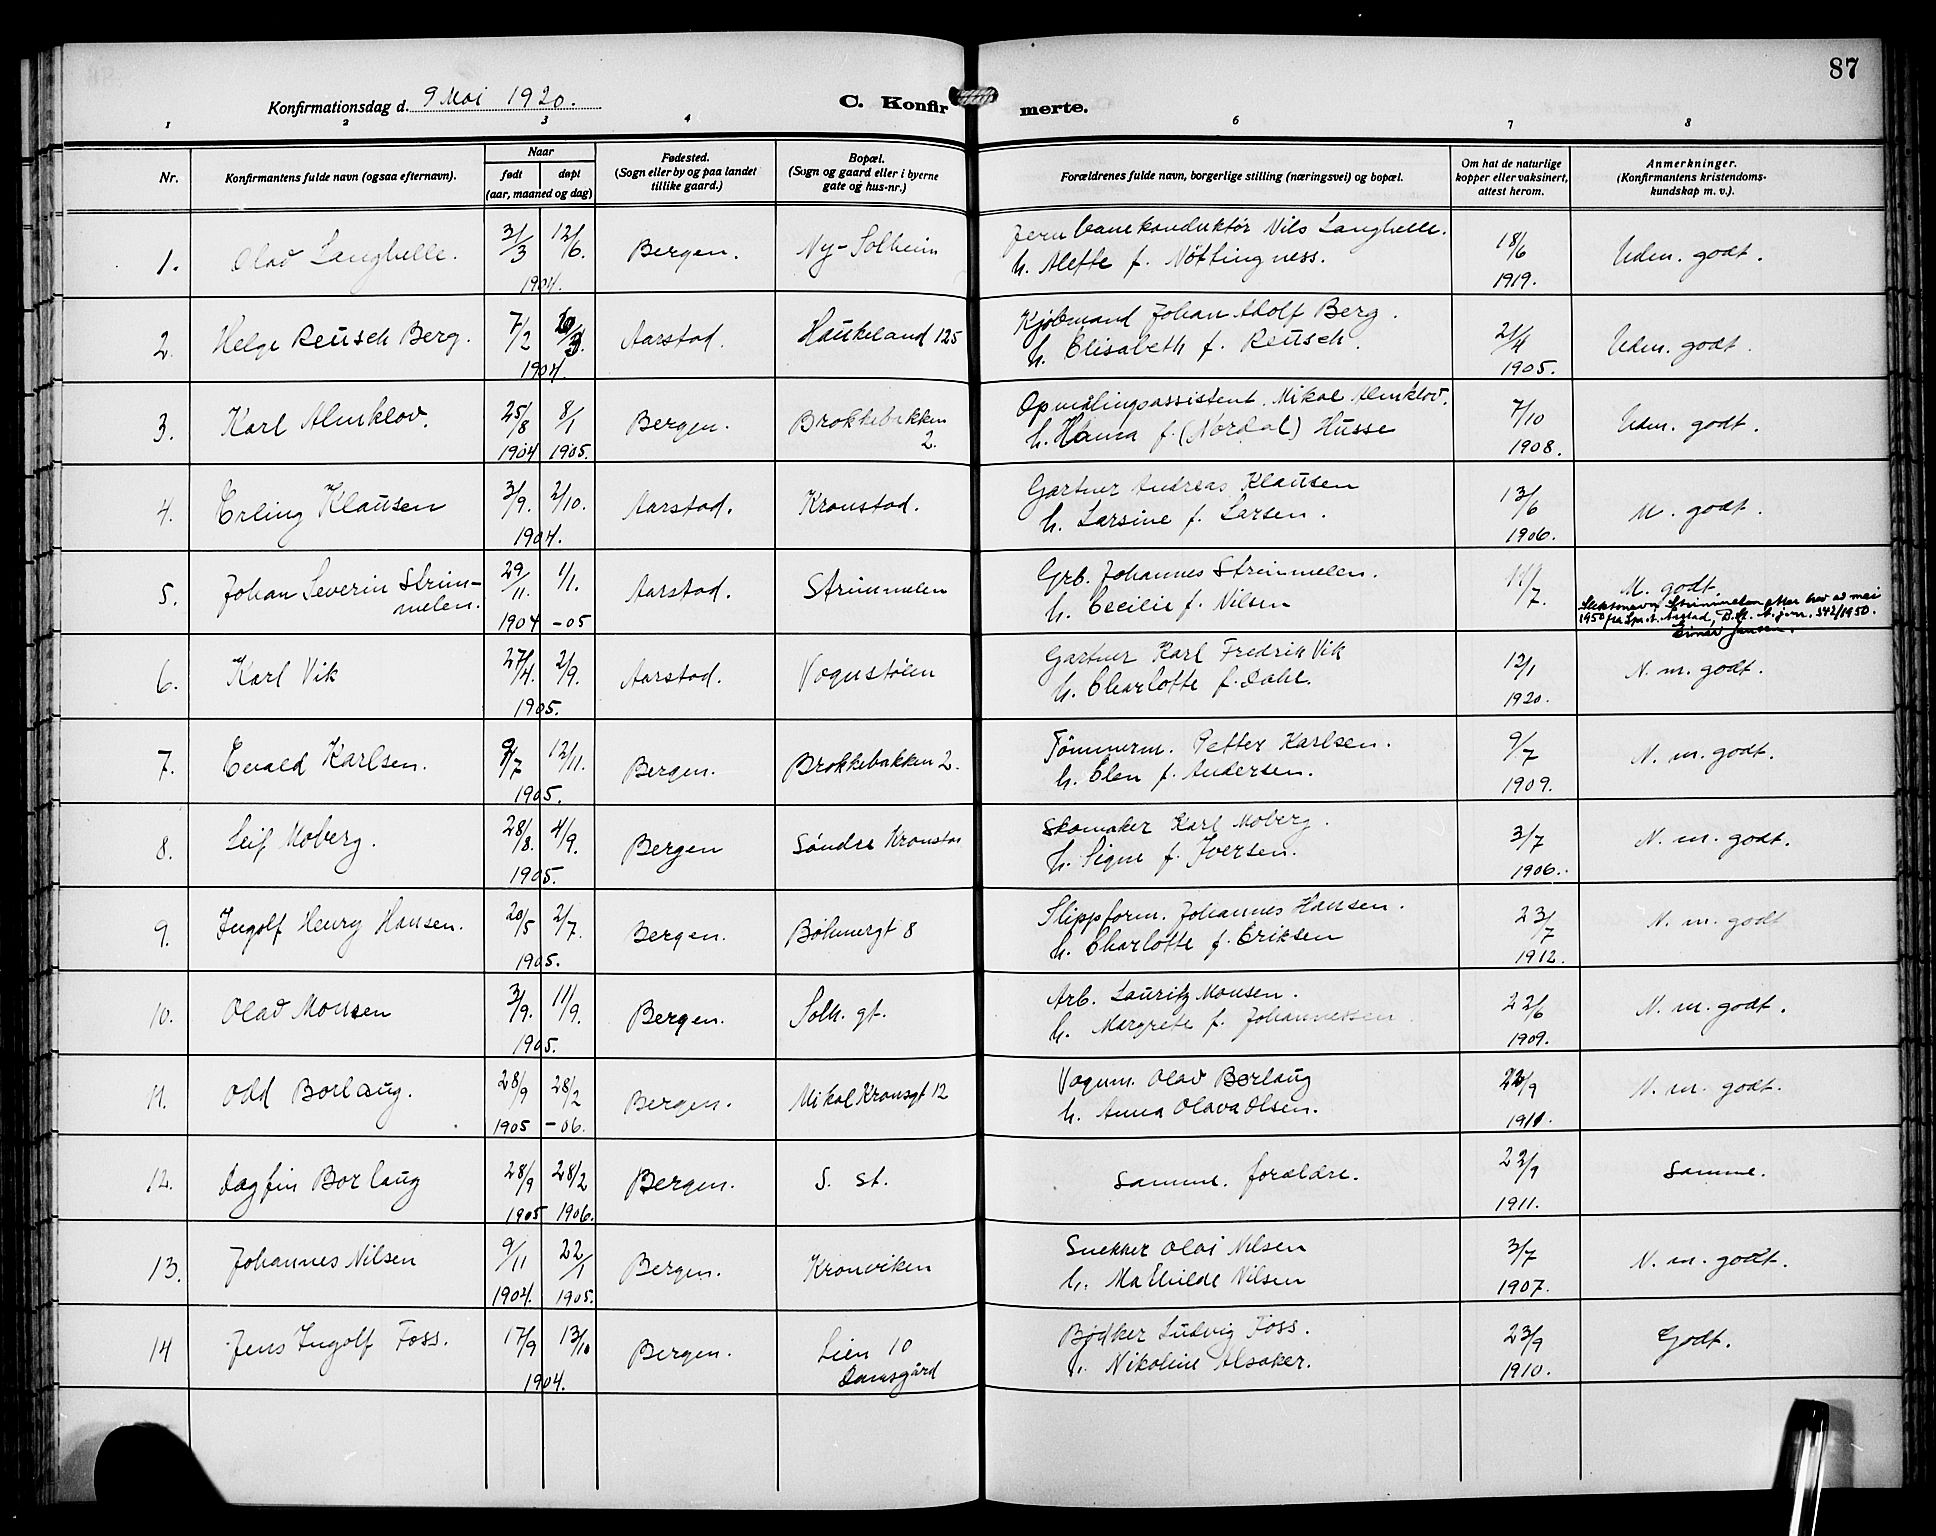 87
Konfirmationsdag d. 9 Mai 1920.
C. Konfirmerte.
1 2 3 4 6 7 8
Nr.
Konfirmantens fulde navn (ogsaa efternavn).
Naar
født døpt
(aar, maaned og dag)
Fødested.
(Sogn eller by og paa landet
tillike gaard.)
Bopæl.
(Sogn og gaard eller i byerne
gate og hus-nr.)
Forældrenes fulde navn, borgerlige stilling (næringsvei) og bopæl.
Om hat de naturlige
kopper eller vaksinert,
attest herom.
Anmerkninger.
(Konfirmantens kristendoms-
kundskap m. v.).
1. Olav Langhelle. 31/3 12/6 1904. Bergen. Ny-Solheim
Jernbanekonduktør Nils Langhelle.
h. Alette f. Nøttingness. 18/6 1919. Udm. godt.
2. Helge Reusch Berg. 7/2 1904. Aarstad. Haukeland 125
Kjøbmand Johan Adolf Berg.
h. Elisabeth f. Reusch. 21/4 1905. Udm. godt.
3. Karl Almklov. 25/8 1904 8/1 1905. Bergen. Brokkebakken 2.
Opmålingsassistent. Mikal Almklov.
h. Hanna f. (Nordal) Husse 7/10 1908. Udm. godt.
4. Erling Klausen 3/9. 2/10. 1904. Aarstad. Kronstad.
Gartner Andreas Klausen
h. Larsine f. Larsen. 13/6 1906. M. godt.
5. Johan Severin Strim-
melen. 29/11. 1904 1/1. -05 Aarstad. Strimmelen
Grb. Johannes Strimmelen.
h. Cecilie f. Nilsen 11/7. M. godt.
Slektsnavn Strimmelen etter brev av mai
1950 fra Spr. i Årstad, B.st. A. jnr. 342/1950.
Einar Jansen.
6. Karl Vik 27/4. 2/9. 1905. Aarstad. Vognstølen
Gartner Karl Fredrik Vik
h. Charlotte f. Dahl. 12/1 1920. N. m. godt.
7. Evald Karlsen. 9/7 12/11. 1905. Bergen. Brokkebakken 2.
Tømmerm. Petter Karlsen.
h. Elen f. Andersen. 9/7 1909. N. m. godt.
8. Leif Moberg. 28/8. 4/9. 1905. Bergen Søndre Kronstad
Skomaker Karl Moberg.
h. Signe f. Iversen. 3/7 1906. N. m. godt.
9. Ingolf Henry Hansen. 20/5 2/7. 1905. Bergen. Bøhmergt 8
Slippform. Johannes Hansen.
h. Charlotte f. Eriksen 23/7 1912. N. m. godt
10. Olav Monsen 3/9. 11/9. 1905. Bergen. Solh. gt.
Arb. Lauritz Monsen.
h. Margrete f. Johannessen 22/6 1909. N. m. godt.
11. Odd Borlaug. 28/9 1905 28/2 -06. Bergen. Mikal Kronsgt 12
Vognm. Olav Borlaug
h. Anna Olava Olsen. 22/9 1911. N. m. godt.
12. Dagfin Borlaug 28/9 1905 28/2 1906. Bergen. S. st.
Samme. forældre. 22/9 1911. Samme.
13. Johannes Nilsen 9/11 1904. 22/1 1905. Bergen. Kronviken
Snekker Olai Nilsen
h. Mathilde Nilsen 3/7 1907. N. m. godt.
14 Jens Ingolf Foss. 17/9 13/10 1904. Bergen. Lien 10
Damsgård
Bødker Ludvig Foss.
h. Nikoline Alsaker. 23/9 1910. Godt.